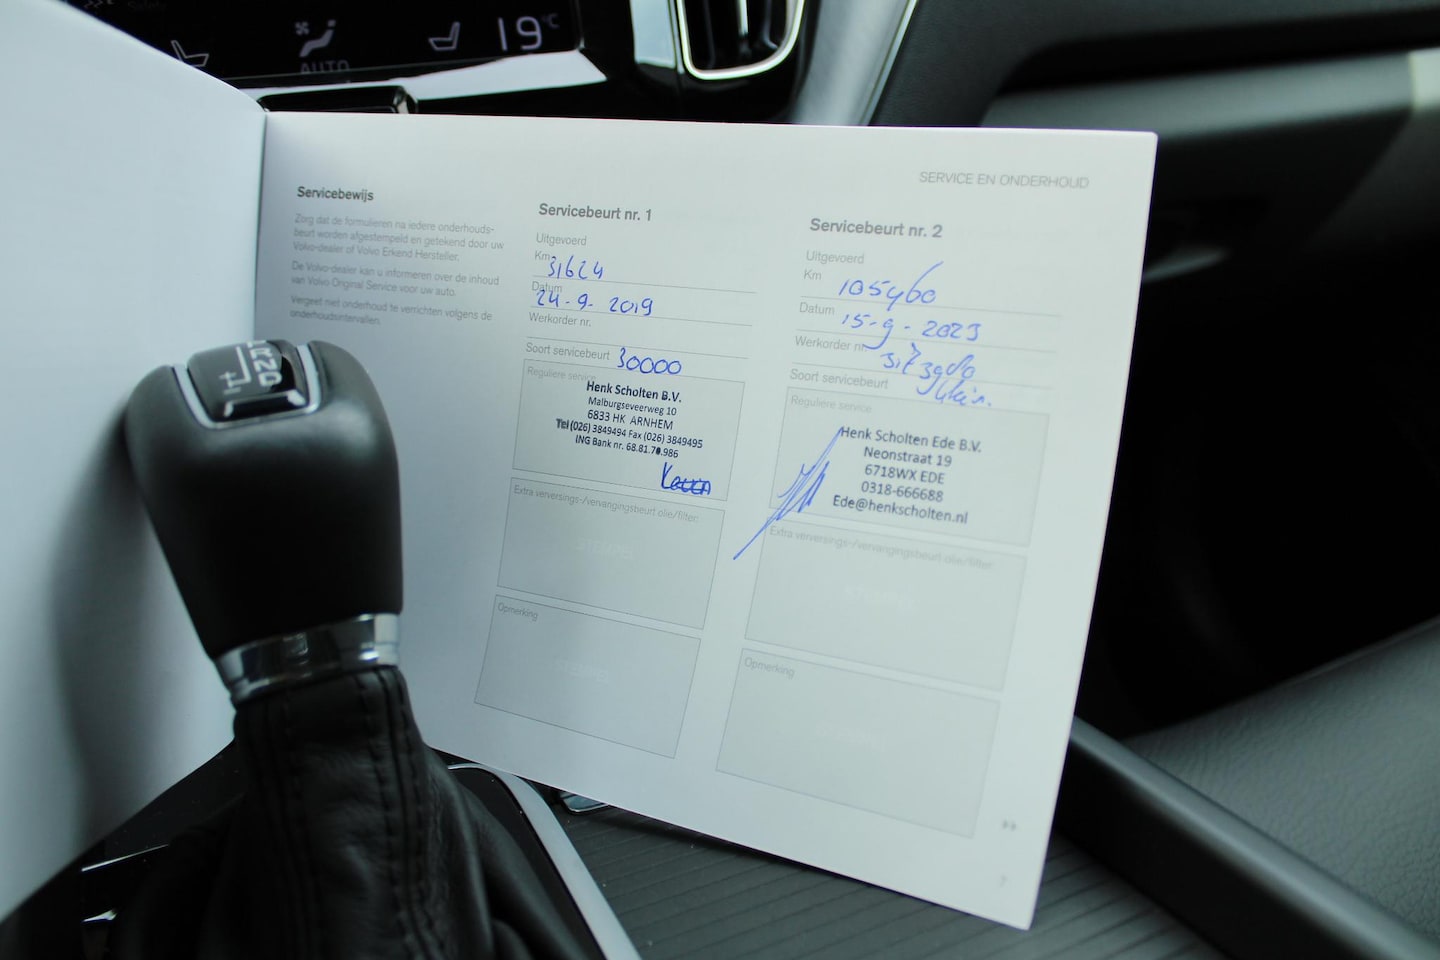 AUTO
19°C
SERVICE EN ONDERHOUD
Servicebewijs
Zorg dat de formulieren na iedere onderhouds-
beurt worden afgestempeld en getekend door uw
Volvo-dealer of Volvo Erkend Hersteller.
De Volvo-dealer kan u informeren over de inhoud
van Volvo Original Service voor uw auto.
Vergeet niet onderhoud te verrichten volgens de
onderhoudsintervallen.
Servicebeurt nr. 1
Uitgevoerd
Km 31624
Datum 24-9-2019
Werkorder nr.
Soort servicebeurt 30000
Reguliere service
Henk Scholten B.V.
Malburgseveerweg 10
6833 HK ARNHEM
Tel (026) 3849494 Fax (026) 3849495
ING Bank nr. 68.81.70.986
Extra verversings-/vervangingsbeurt olie/filter:
STEMPEL
Opmerking
STEMPEL
Servicebeurt nr. 2
Uitgevoerd
Km 105460
Datum 15-9-2023
Werkorder nr.
Soort servicebeurt
Reguliere service
Henk Scholten Ede B.V.
Neonstraat 19
6718WX EDE
0318-666688
Ede@henkscholten.nl
Extra verversings-/vervangingsbeurt olie/filter:
STEMPEL
Opmerking
7